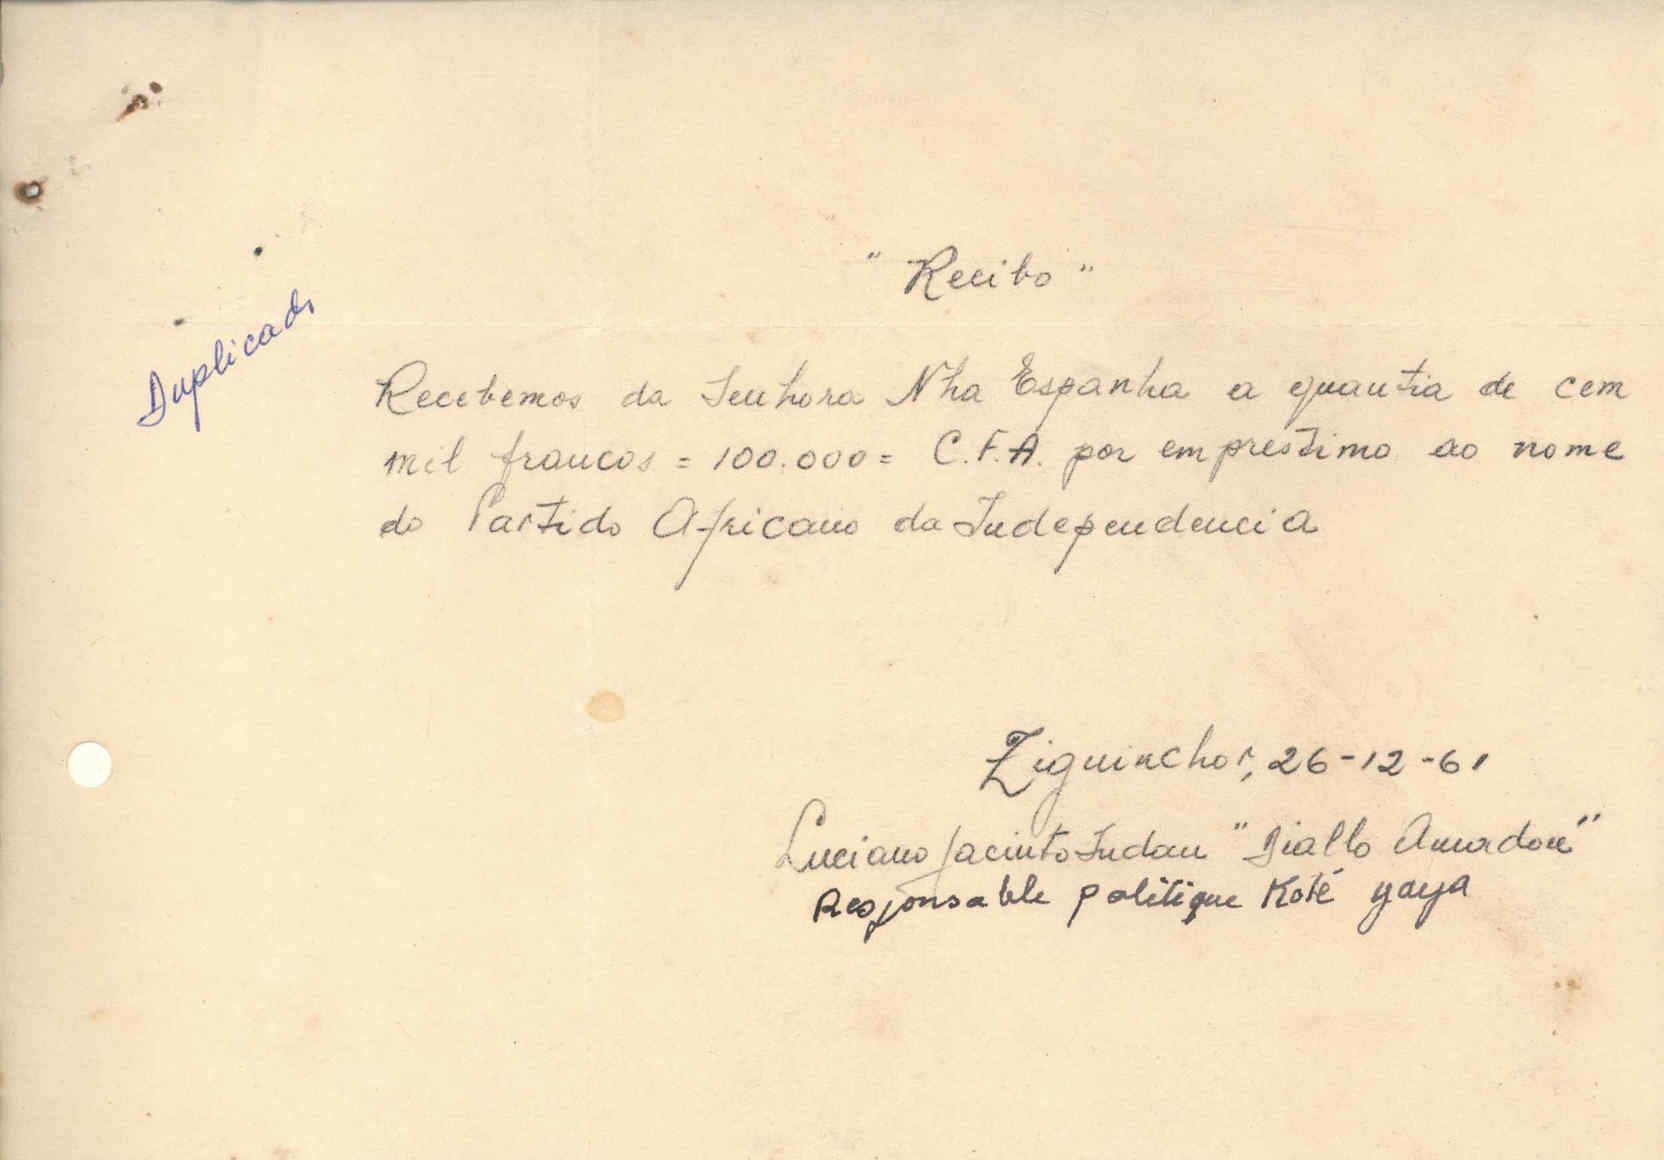 Duplicado
" Recibo "
Recebemos da Senhora Nha Espanha a quantia de cem
mil francos = 100.000 = C.F.A. por emprestimo ao nome
do Partido Africano da Independencia
Ziguinchor, 26-12-61
Luciano Jacinto Indau "Diallo Amadou"
Responsable politique Koté yaya